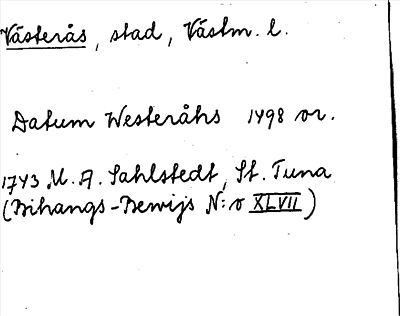 Västerås, stad, Västm. l.
Datum Westeråhs 1498 or.
1743 M. A. Sahlstedt, St. Tuna
(Bihangs-Bewijs N:o XLVII)